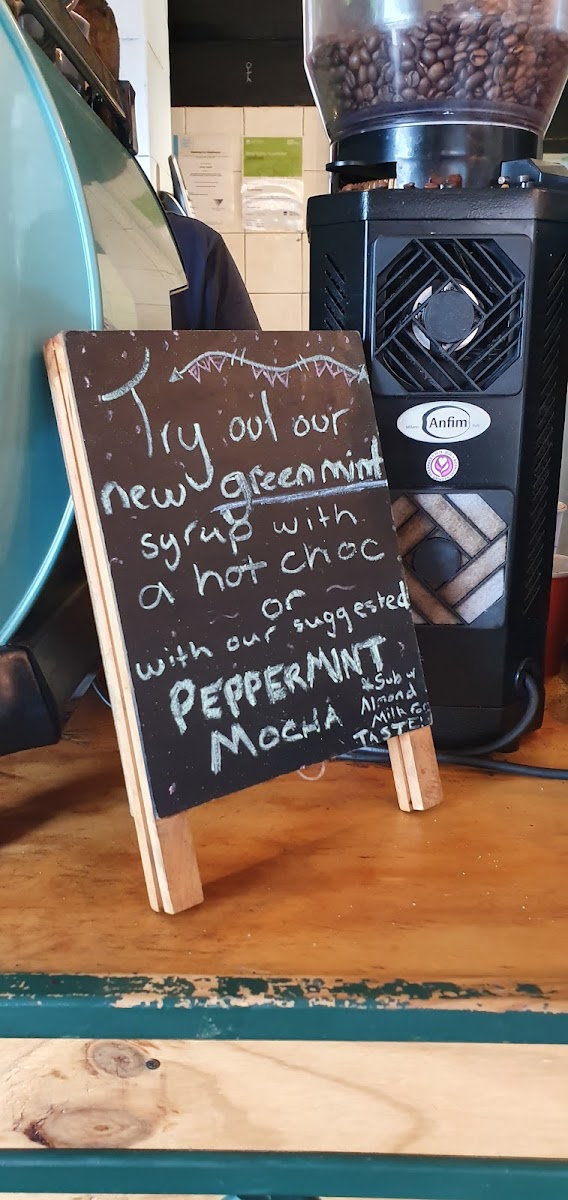 Try out our
new green mint
syrup with
a hot choc
~ or ~
with our suggested
PEPPERMINT
MOCHA
*Sub w
Almond
Milk
Anfim